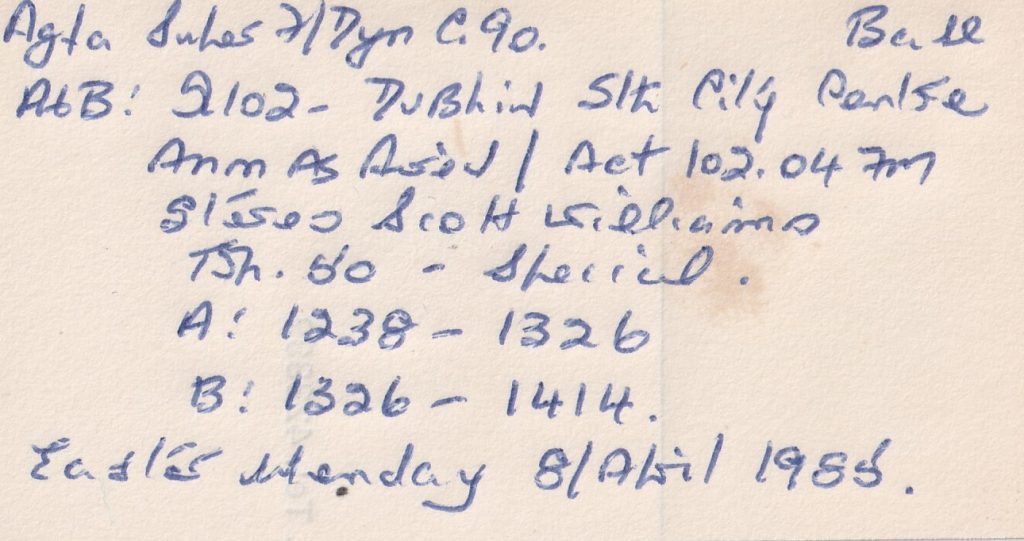 Agfa Super F/Dyn C.90. Base
A+B: 2102 - Dublin Sth City Centre
Ann As Aried / Act 102.04 Fm
Steves Scott Williams
Tsh. 50 - Special.
A: 1238 - 1326
B: 1326 - 1414.
Easter Monday 8/April 1985.